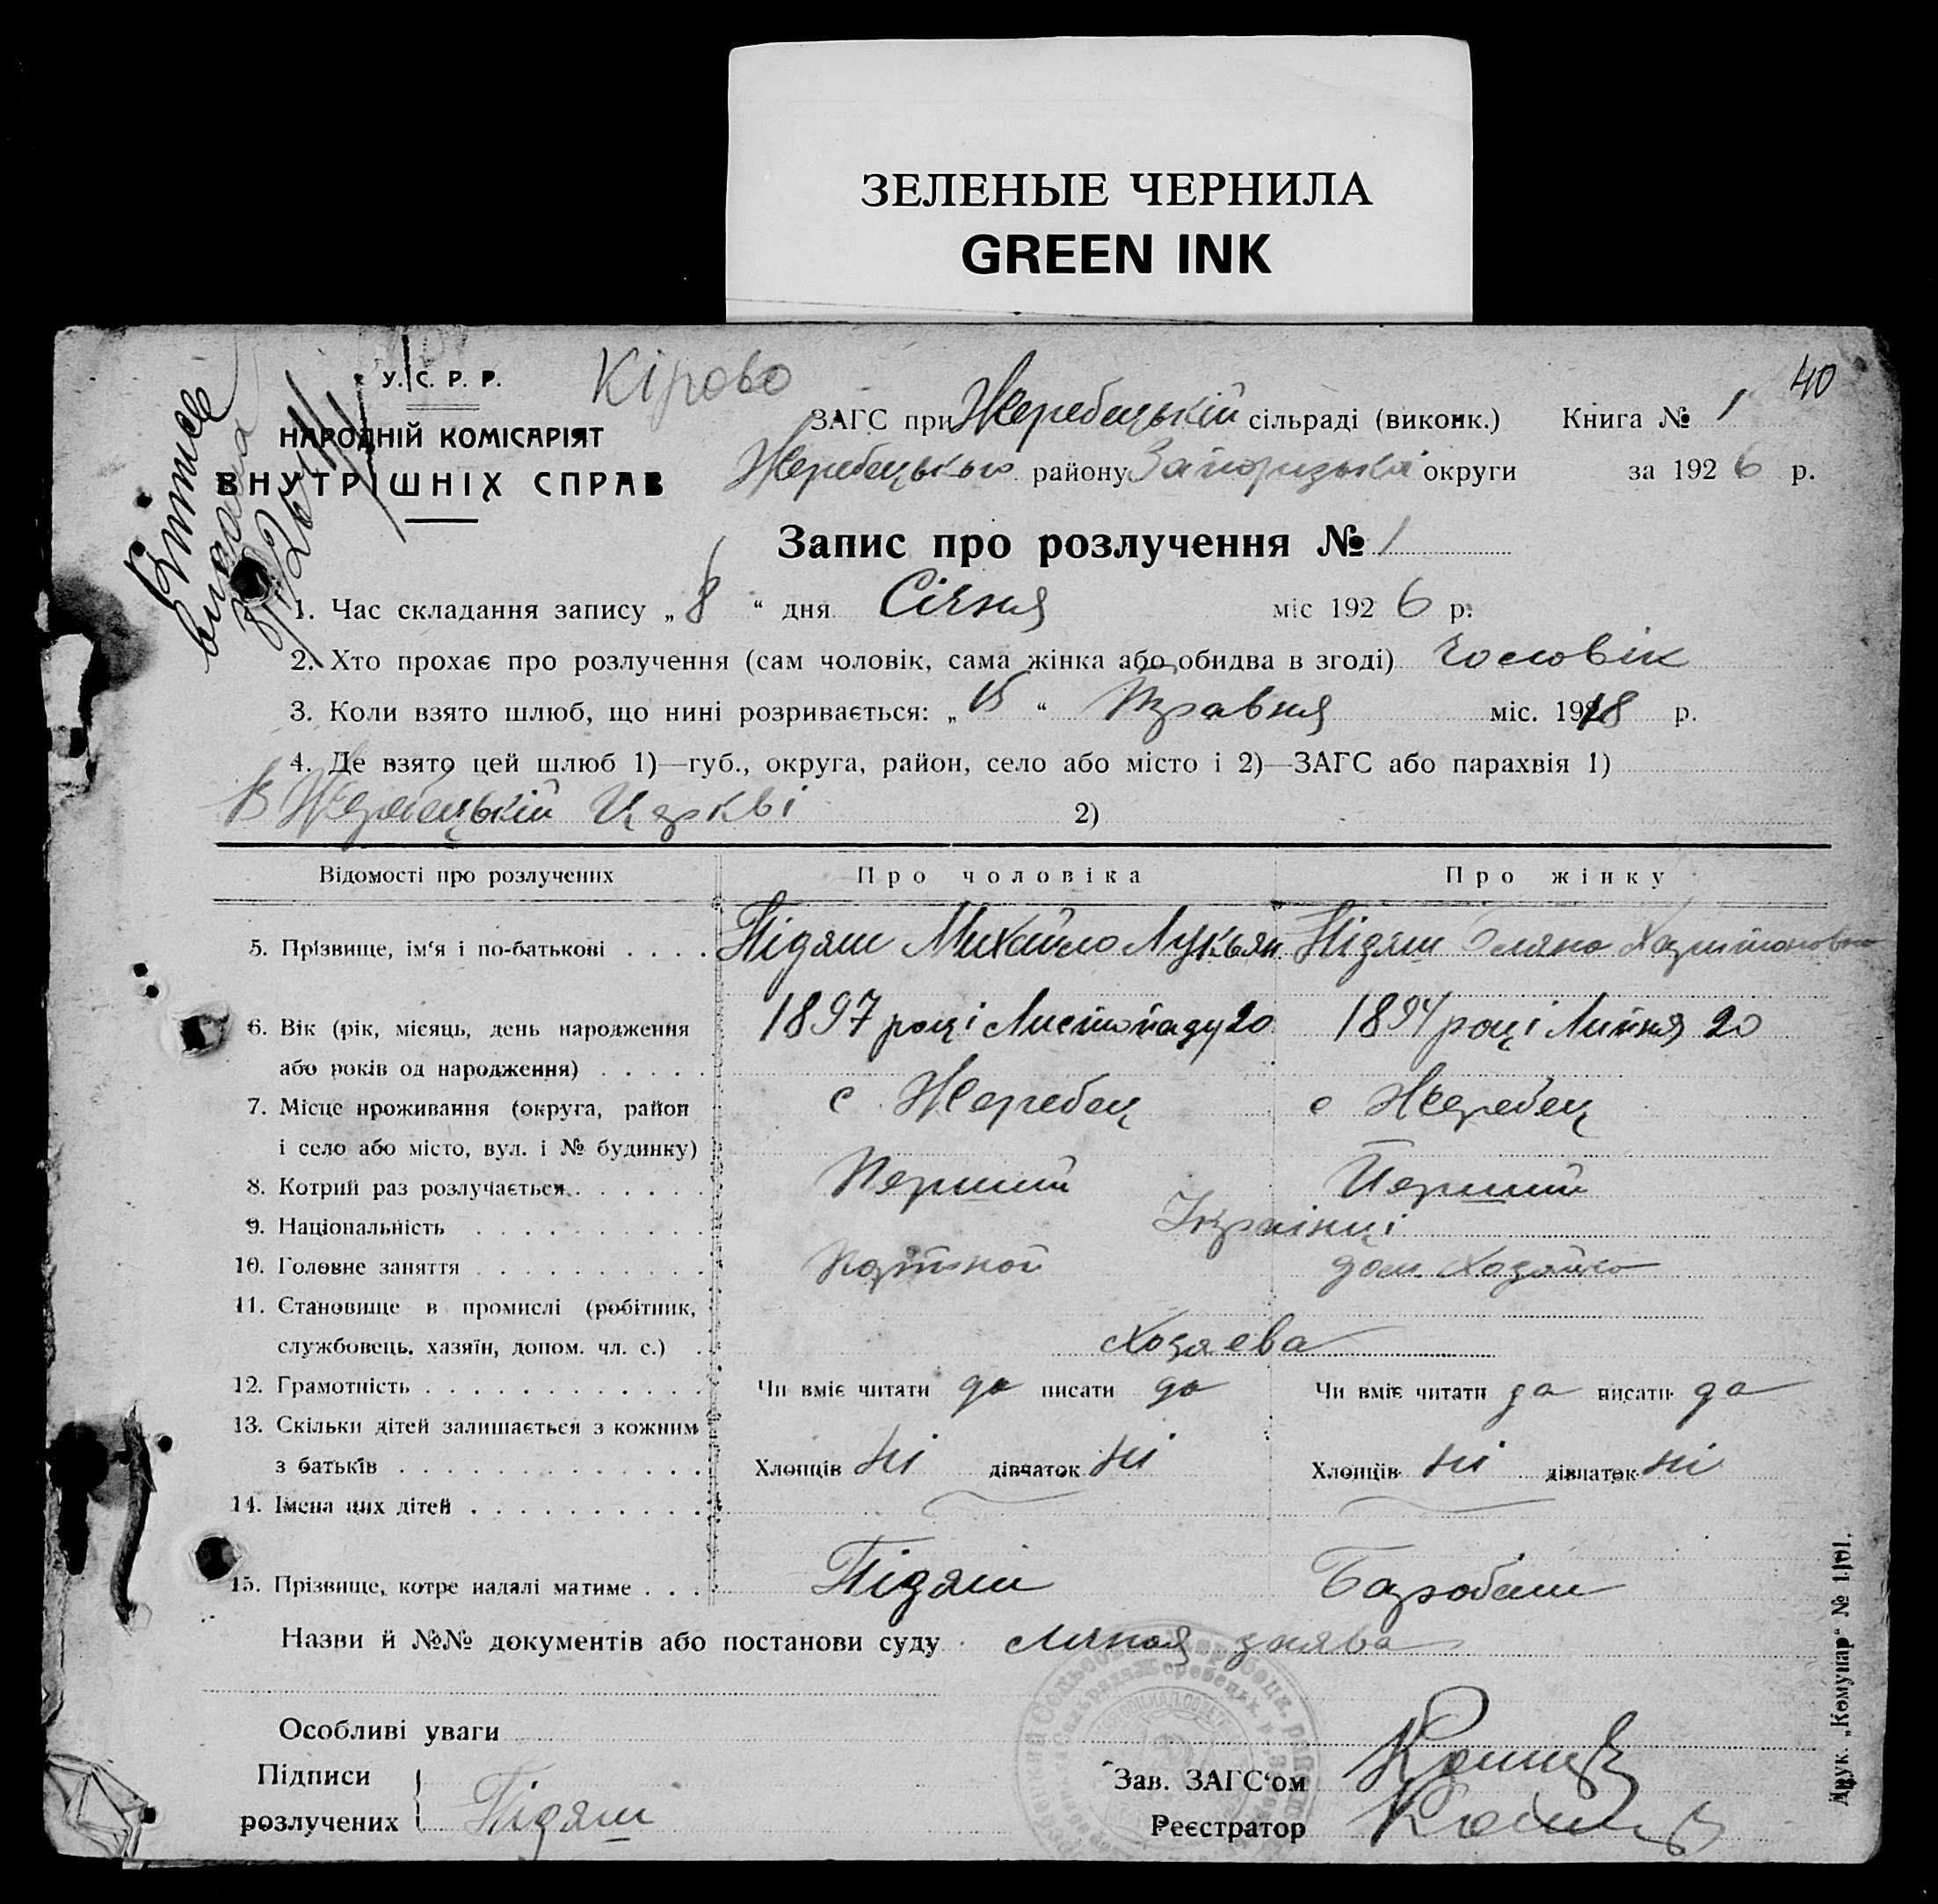 ЗЕЛЕНЫЕ ЧЕРНИЛА
GREEN INK
У. С. Р. Р.
НАРОДНІЙ КОМІСАРІЯТ
ВНУТРІШНІХ СПРАВ
Кірово
40
ЗАГС при Жеребецькій сільраді (виконк.) Книга № 1
Жеребецького району Запорізька округи за 1926 р.
Запис про розлучення № 1
1. Час складання запису „8“ дня Січня міс 1926 р.
2. Хто прохає про розлучення (сам чоловік, сама жінка або обидва в згоді) Чоловік
3. Коли взято шлюб, що нині розривається: „15“ Травня міс. 1918 р.
4. Де взято цей шлюб 1)—губ., округа, район, село або місто і 2)—ЗАГС або парахвія 1)
В Жеребецькій Церкві 2)
Відомості про розлучених Про чоловіка Про жінку
5. Прізвище, ім'я і по-батькові . . . . Підяш Михайло Лукьян Підяш Харитоновна
6. Вік (рік, місяць, день народження 1897 році Листопаду 20 1894 році Липня 20
або років од народження) . . . . .
7. Місце проживання (округа, район с Жеребец с Жеребец
і село або місто, вул. і № будинку)
8. Котрий раз розлучається . . . . . . Перший Перший
9. Національність . . . . . . . . . Українці
10. Головне заняття . . . . . . . . . . дом. Хозяйка
11. Становище в промислі (робітник,
службовець, хазяїн, допом. чл. с.) . . Хозяева
12. Грамотність . . . . . . . . . . . . Чи вміє читати да писати да Чи вміє читати да писати да
13. Скільки дітей залишається з кожним
з батьків . . . . . . . . . . . . . Хлопців ні дівчаток ні Хлопців ні дівчаток ні
14. Імена цих дітей . . . . . . . . . .
15. Прізвище, котре надалі матиме . . . Підяш Барабаш
Назви й №№ документів або постанови суду
Особливі уваги
Підписи
розлучених Підяш
Зав. ЗАГС'ом
Реєстратор
Друк. „Комунар“ № 1101.